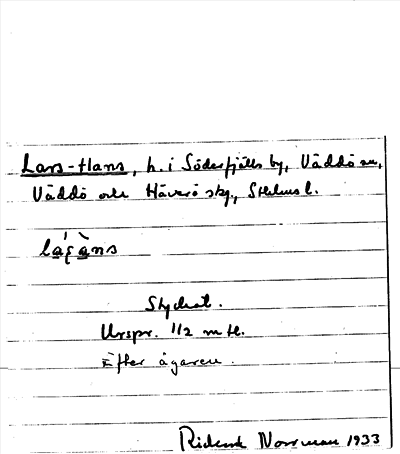 Lars-Hans, h. i Söderfjälls by, Väddö sn,
Väddö och Häverö skg., Sthlms l.
lásàns
Styckat.
Urspr. 1/2 mtl.
Efter ägaren.
Rickard Norrman 1933